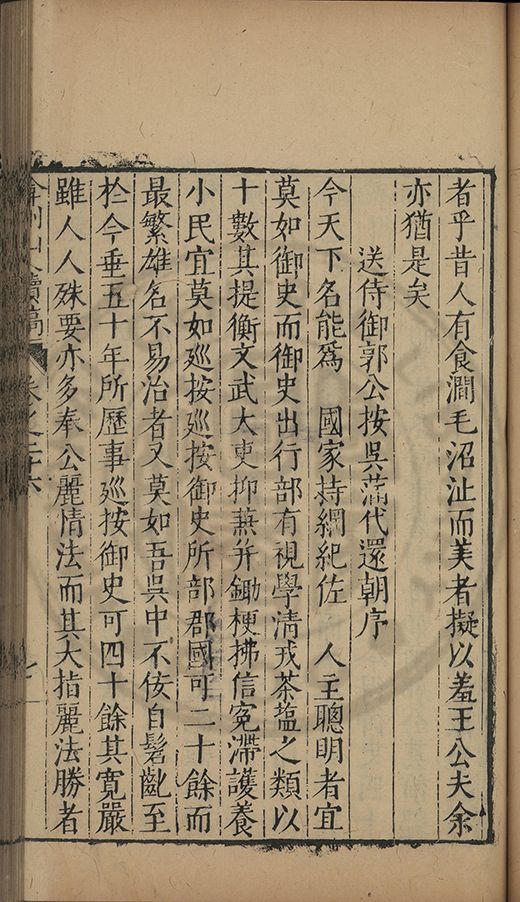 者乎昔人有食澗毛沼沚而美者擬以羞王公夫余
亦猶是矣
送侍御郭公按吳滿代還朝序
今天下名能爲 國家持綱紀佐 人主聰明者宜
莫如御史而御史出行部有視學清戎茶塩之類以
十數其提衡文武大吏抑蕪并鋤梗拂信冤滯護養
小民宜莫如廵按廵按御史所部郡國可二十餘而
最繁雄名不易治者又莫如吾吳中不佞自髫齔至
於今垂五十年所歷事廵按御史可四十餘其寬嚴
雖人人殊要亦多奉公麗情法而其大指麗法勝者
山人續稿 卷之二十六 七